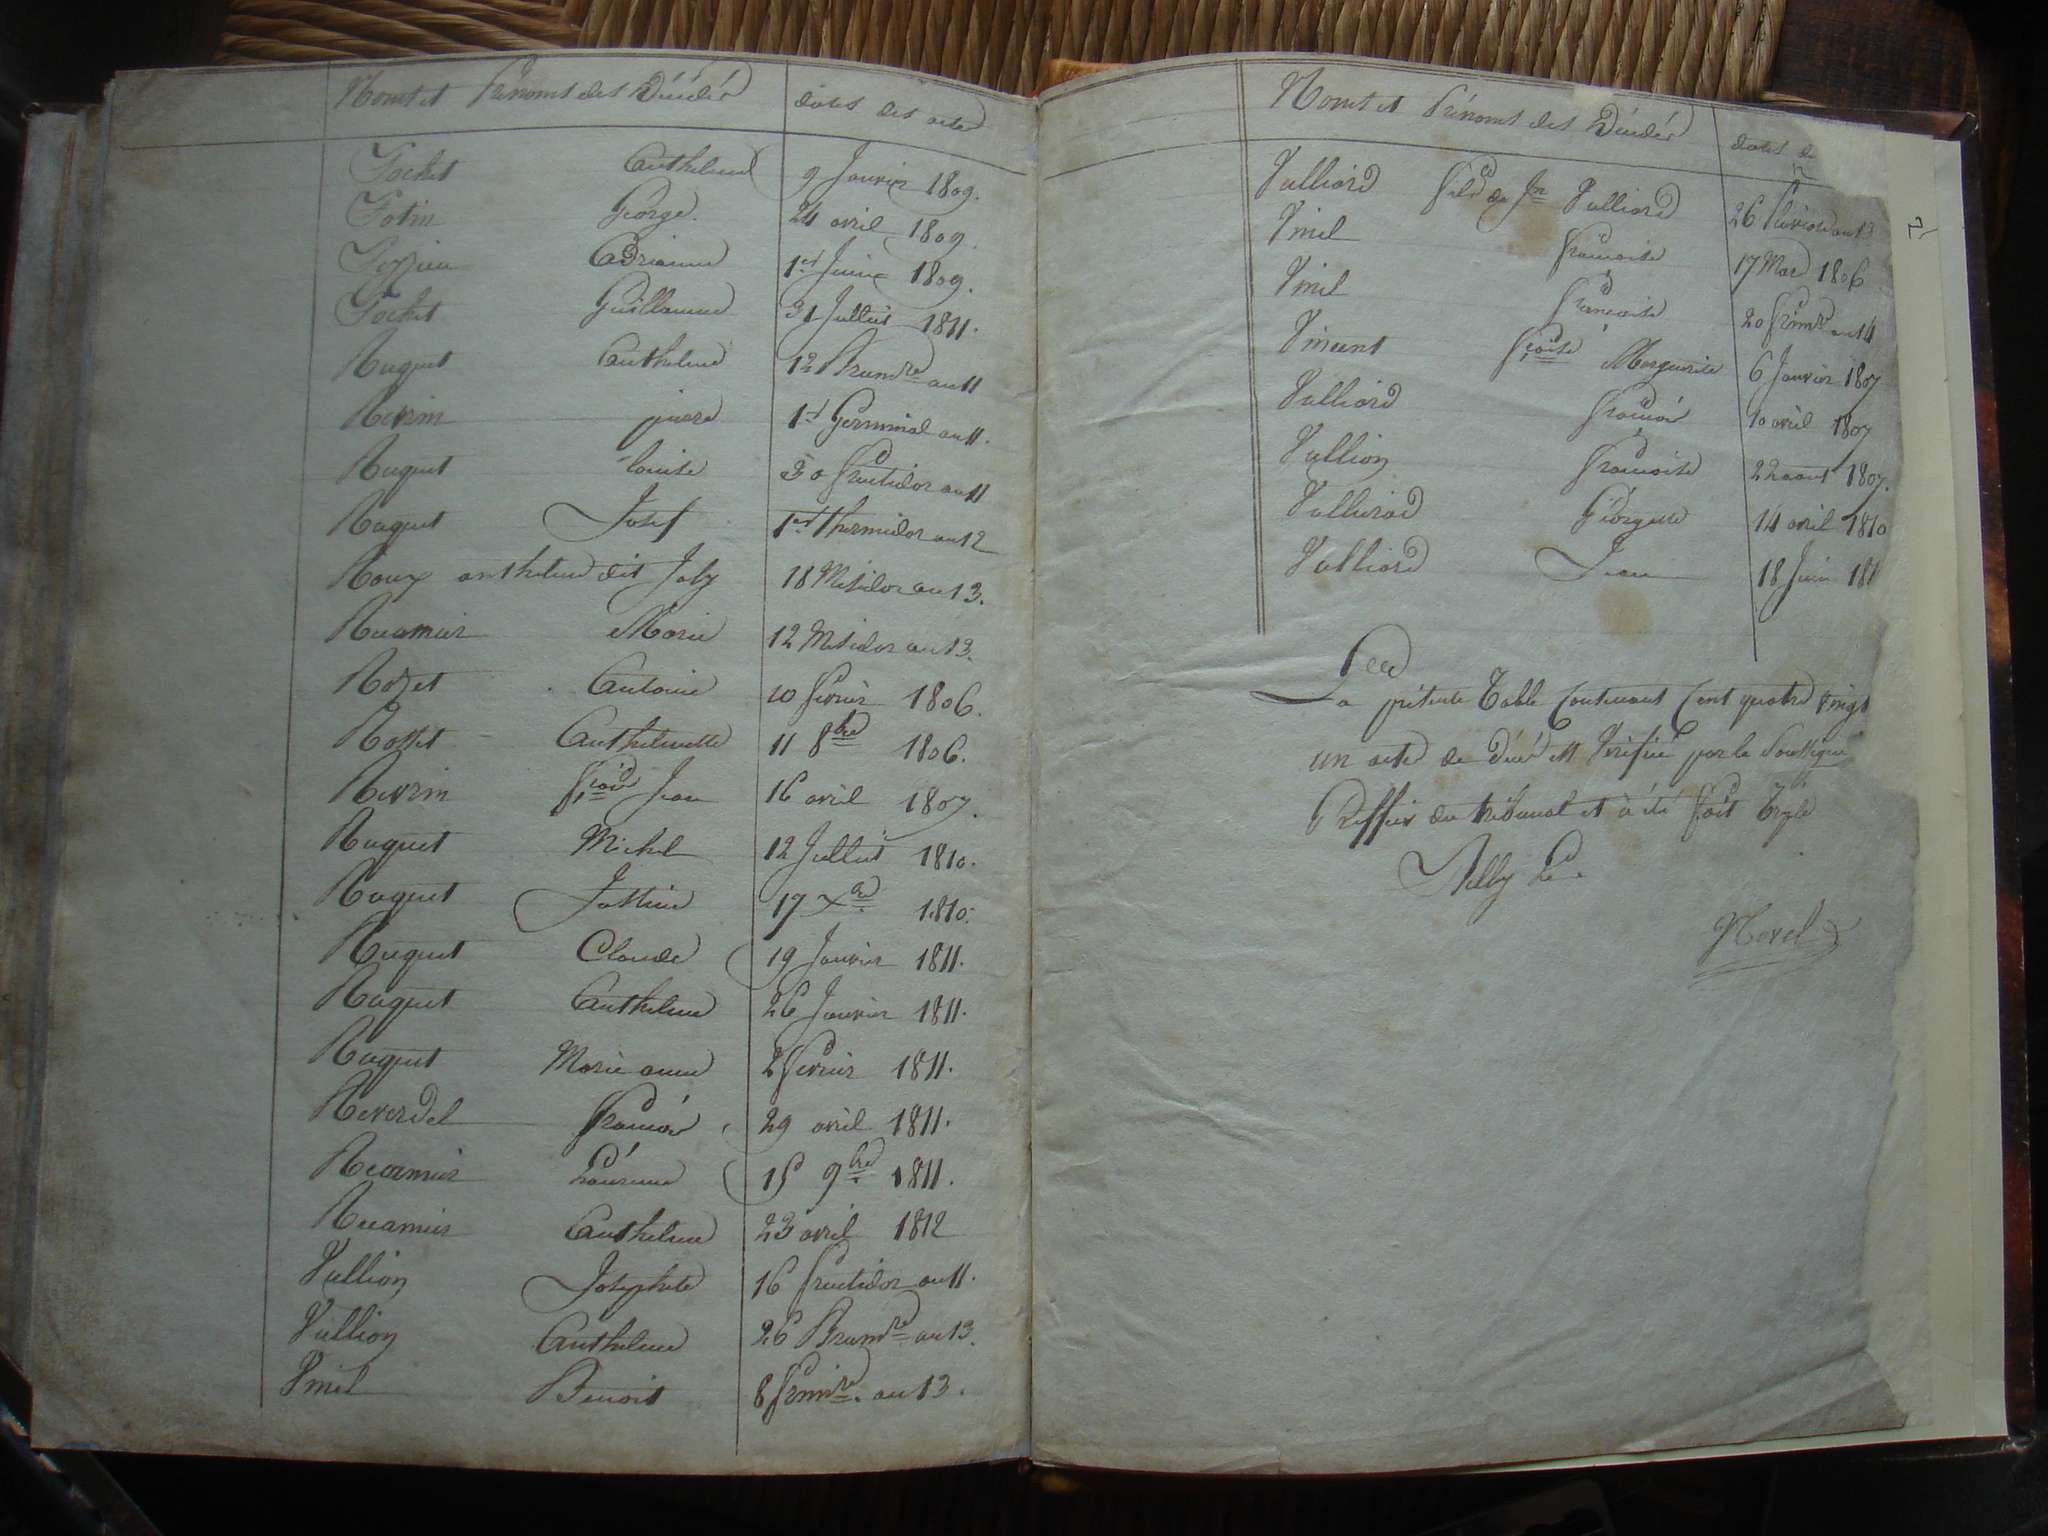 Noms et Prénoms des Décédés dates des actes
Pochet Anthelme 9 Janvier 1809.
Potin George. 24 avril 1809.
Adrienne 1er Juin 1809.
Pochet Guillaume 31 Juillet 1811.
Ruguet Anthelme 12 Brumre an 11
Revrin pierre 1er Germinal an 11.
Ruguet Louise 30 fructidor an 11
Ruguet Josef 1er thermidor an 12
Roux anthelme dit Joly 18 Messidor an 13.
Recamier Marie 12 Messidor an 13.
Rozet Antoine 10 fevrier 1806.
Rosset Anthelmette 11 8bre 1806.
Revrin fcois Jean 16 avril 1807.
Ruguet Michel 12 Juillet 1810.
Ruguet Justine 17 Xre 1810.
Ruguet Claude 19 Janvier 1811.
Ruguet Anthelme 26 Janvier 1811.
Ruguet Marie anne 2 fevrier 1811.
Reverdel françois 29 avril 1811.
Recamier Laurence 15 9bre 1811.
Recamier Anthelme 23 avril 1812
Vullion Josephte 16 fructidor an 11.
Vullion Anthelme 26 Brumre an 13.
Vmil Benoit 8 frimre. an 13.
Noms et Prénoms des Décédés dates de
Vulliard fils de Jn Vulliard 26 Pluviose an 13
Vmil francoise 17 Mars 1806
Vmil francoise 20 frimre an 14
Vincent fcoise Marguerite 6 Janvier 1807
Vulliard francois 10 avril 1807
Vullion francoise 22 aout 1807.
Vullierod Georgette 14 avril 1810
Vulliard Jean 18 Juin 181
La présente Table Contenant Cent quatre vingt
un actes de Décès est Vérifiée par le Soussigné
Greffier du tribunal et à été fait
Morel